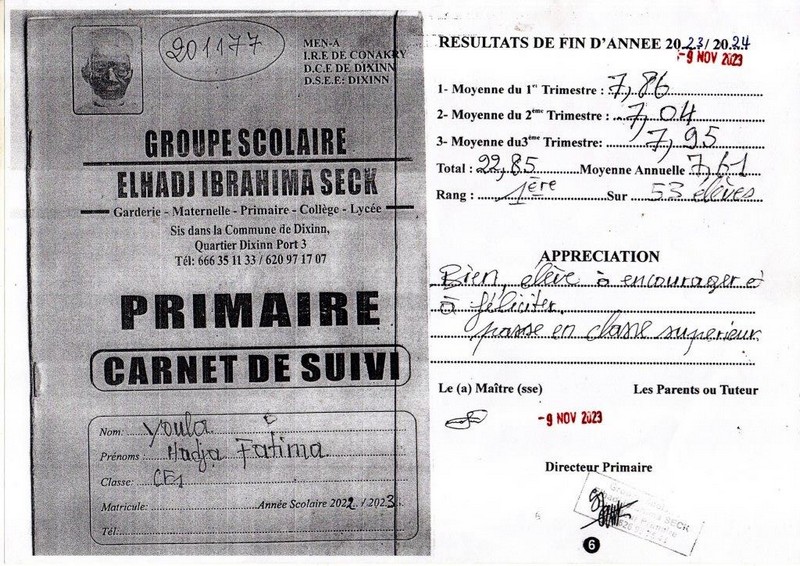 201177
MEN-A
I.R.E DE CONAKRY
D.C.E DE DIXINN
D.S.E.E: DIXINN
GROUPE SCOLAIRE
ELHADJ IBRAHIMA SECK
Garderie - Maternelle - Primaire - Collège - Lycée
Sis dans la Commune de Dixinn,
Quartier Dixinn Port 3
Tél: 666 35 11 33 / 620 97 17 07
PRIMAIRE
CARNET DE SUIVI
Nom: Youla
Prénoms: Hadja Fatima
Classe: CE1
Matricule: Année Scolaire 2022 / 2023
Tél:
RESULTATS DE FIN D'ANNEE 2023/2024
-9 NOV 2023
1- Moyenne du 1er Trimestre : 7,86
2- Moyenne du 2ème Trimestre : 7,04
3- Moyenne du 3ème Trimestre: 7,95
Total : 22,85 Moyenne Annuelle 7,61
Rang : 1ère Sur 53 élèves
APPRECIATION
Bien, elève à encourager et
à féliciter.
passe en classe superieur
Le (a) Maître (sse) Les Parents ou Tuteur
-9 NOV 2023
Directeur Primaire
SECK
6